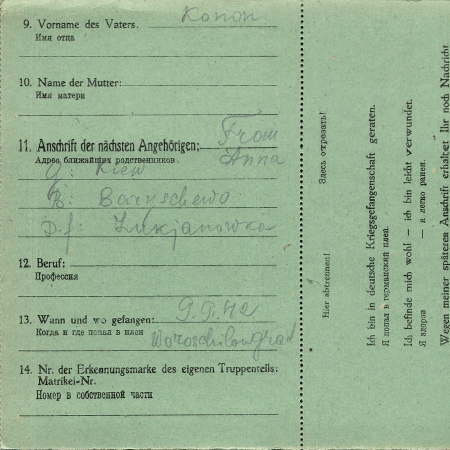 9. Vorname des Vaters. Konon
Имя отца
10. Name der Mutter:
Имя матери
From
11. Anschrift der nächsten Angehörigen:
Адрес ближайших родственников. Anna
G: Kiew
B: Baryschewo
D-f: Lukjanowka
12. Beruf:
Профессия
13. Wann und wo gefangen:
Когда и где попал в плен Woroschilowgrad
14. Nr. der Erkennungsmarke des eigenen Truppenteils:
Matrikel-Nr.
Номер в собственной части
Здесь отрезать!
Hier abtrennen!
Ich bin in deutsche Kriegsgefangenschaft geraten.
Я попал в германский плен.
Ich befinde mich wohl — ich bin leicht verwundet.
Я здоров — я легко ранен.
Wegen meiner späteren Anschrift erhaltet Ihr noch Nachricht